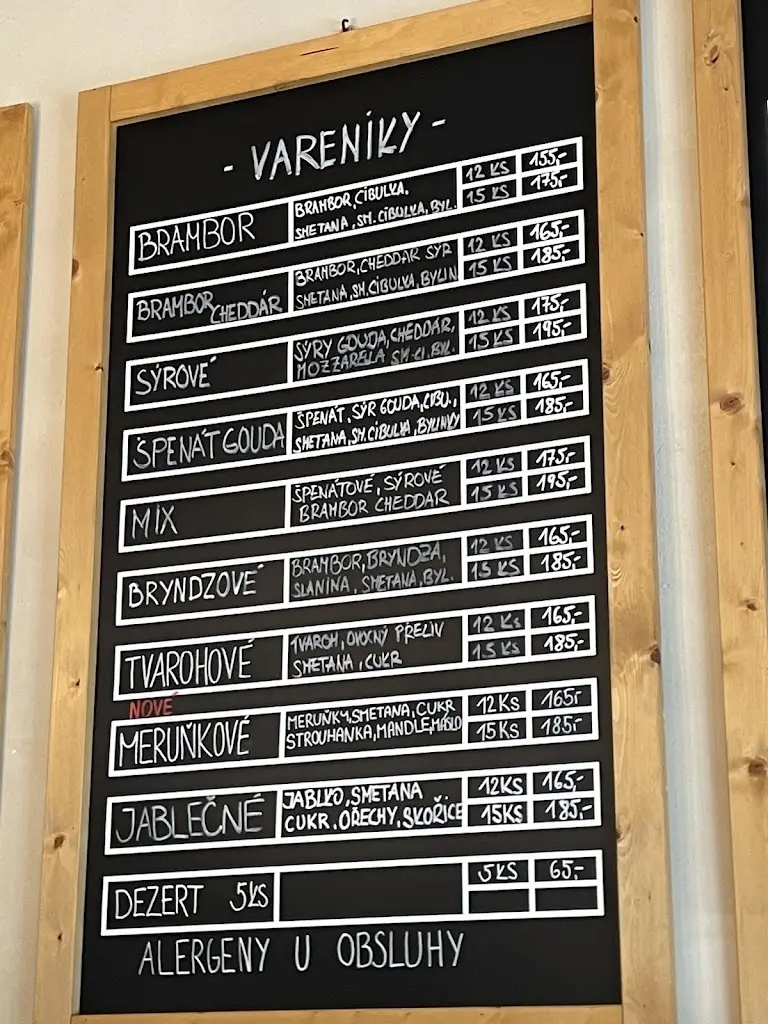 - VARENÍKY -
BRAMBOR
BRAMBOR, CIBULKA,
SMETANA, SM. CIBULKA, BYL.
12 KS 155,-
15 KS 175,-
BRAMBOR CHEDDÁR
BRAMBOR, CHEDDAR SÝR
SMETANA, SM. CIBULKA, BYLIN
12 KS 165,-
15 KS 185,-
SÝROVÉ
SÝRY GOUDA, CHEDDÁR,
MOZZARELA SM. CI. BYL.
12 KS 175,-
15 KS 195,-
ŠPENÁT GOUDA
ŠPENÁT, SÝR GOUDA, CIBU.,
SMETANA, SM. CIBULKA, BYLINKY
12 KS 165,-
15 KS 185,-
MIX
ŠPENÁTOVÉ, SÝROVÉ
BRAMBOR CHEDDAR
12 KS 175,-
15 KS 195,-
BRYNDZOVÉ
BRAMBOR, BRYNDZA,
SLANINA, SMETANA, BYL.
12 KS 165,-
15 KS 185,-
TVAROHOVÉ
TVAROH, OVOCNÝ PŘELIV
SMETANA, CUKR
12 Ks 165,-
15 Ks 185,-
NOVÉ
MERUŇKOVÉ
MERUŇKY, SMETANA, CUKR
STROUHANKA, MANDLE, MÁSLO
12Ks 165,-
15Ks 185,-
JABLEČNÉ
JABLKO, SMETANA
CUKR, OŘECHY, SKOŘICE
12KS 165,-
15KS 185,-
DEZERT 5KS
5KS 65,-
ALERGENY U OBSLUHY